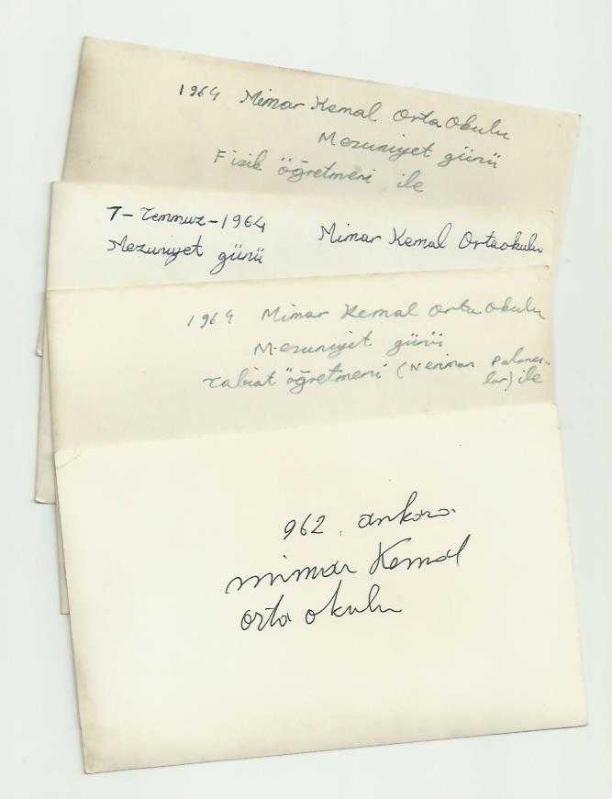 1964 Mimar Kemal Orta Okulu
Mezuniyet günü
Fizik öğretmeni ile
7-Temmuz-1964 Mimar Kemal Ortaokulu
Mezuniyet günü
1964 Mimar Kemal Orta Okulu
Mezuniyet günü
Tabiat öğretmeni (Neriman
lar) ile
962. ankara
mimar Kemal
orta okulu